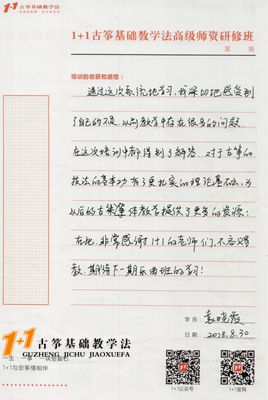 1+1古筝基础教学法
1+1古筝基础教学法高级师资研修班
第 期
培训的收获和感想：
通过这次系统地学习，我深切地感觉到
了自己的不足，以前教学中存在很多的问题，
在这次培训中都得到了解答。对于古筝的
技法的基本功有了更扎实的理论基础，为
以后的古筝集体教学提供了更多的资源；
在此，非常感谢1+1的老师们，不吝赐
教，期待下一期乐曲班的学习！
学员：
日期：2018.8.30
1+1古筝基础教学法
GUZHENG JICHU JIAOXUEFA
一生 · 一事 · 一块垫脚石
1+1与您筝情相伴
1+1公众号
1+1官网